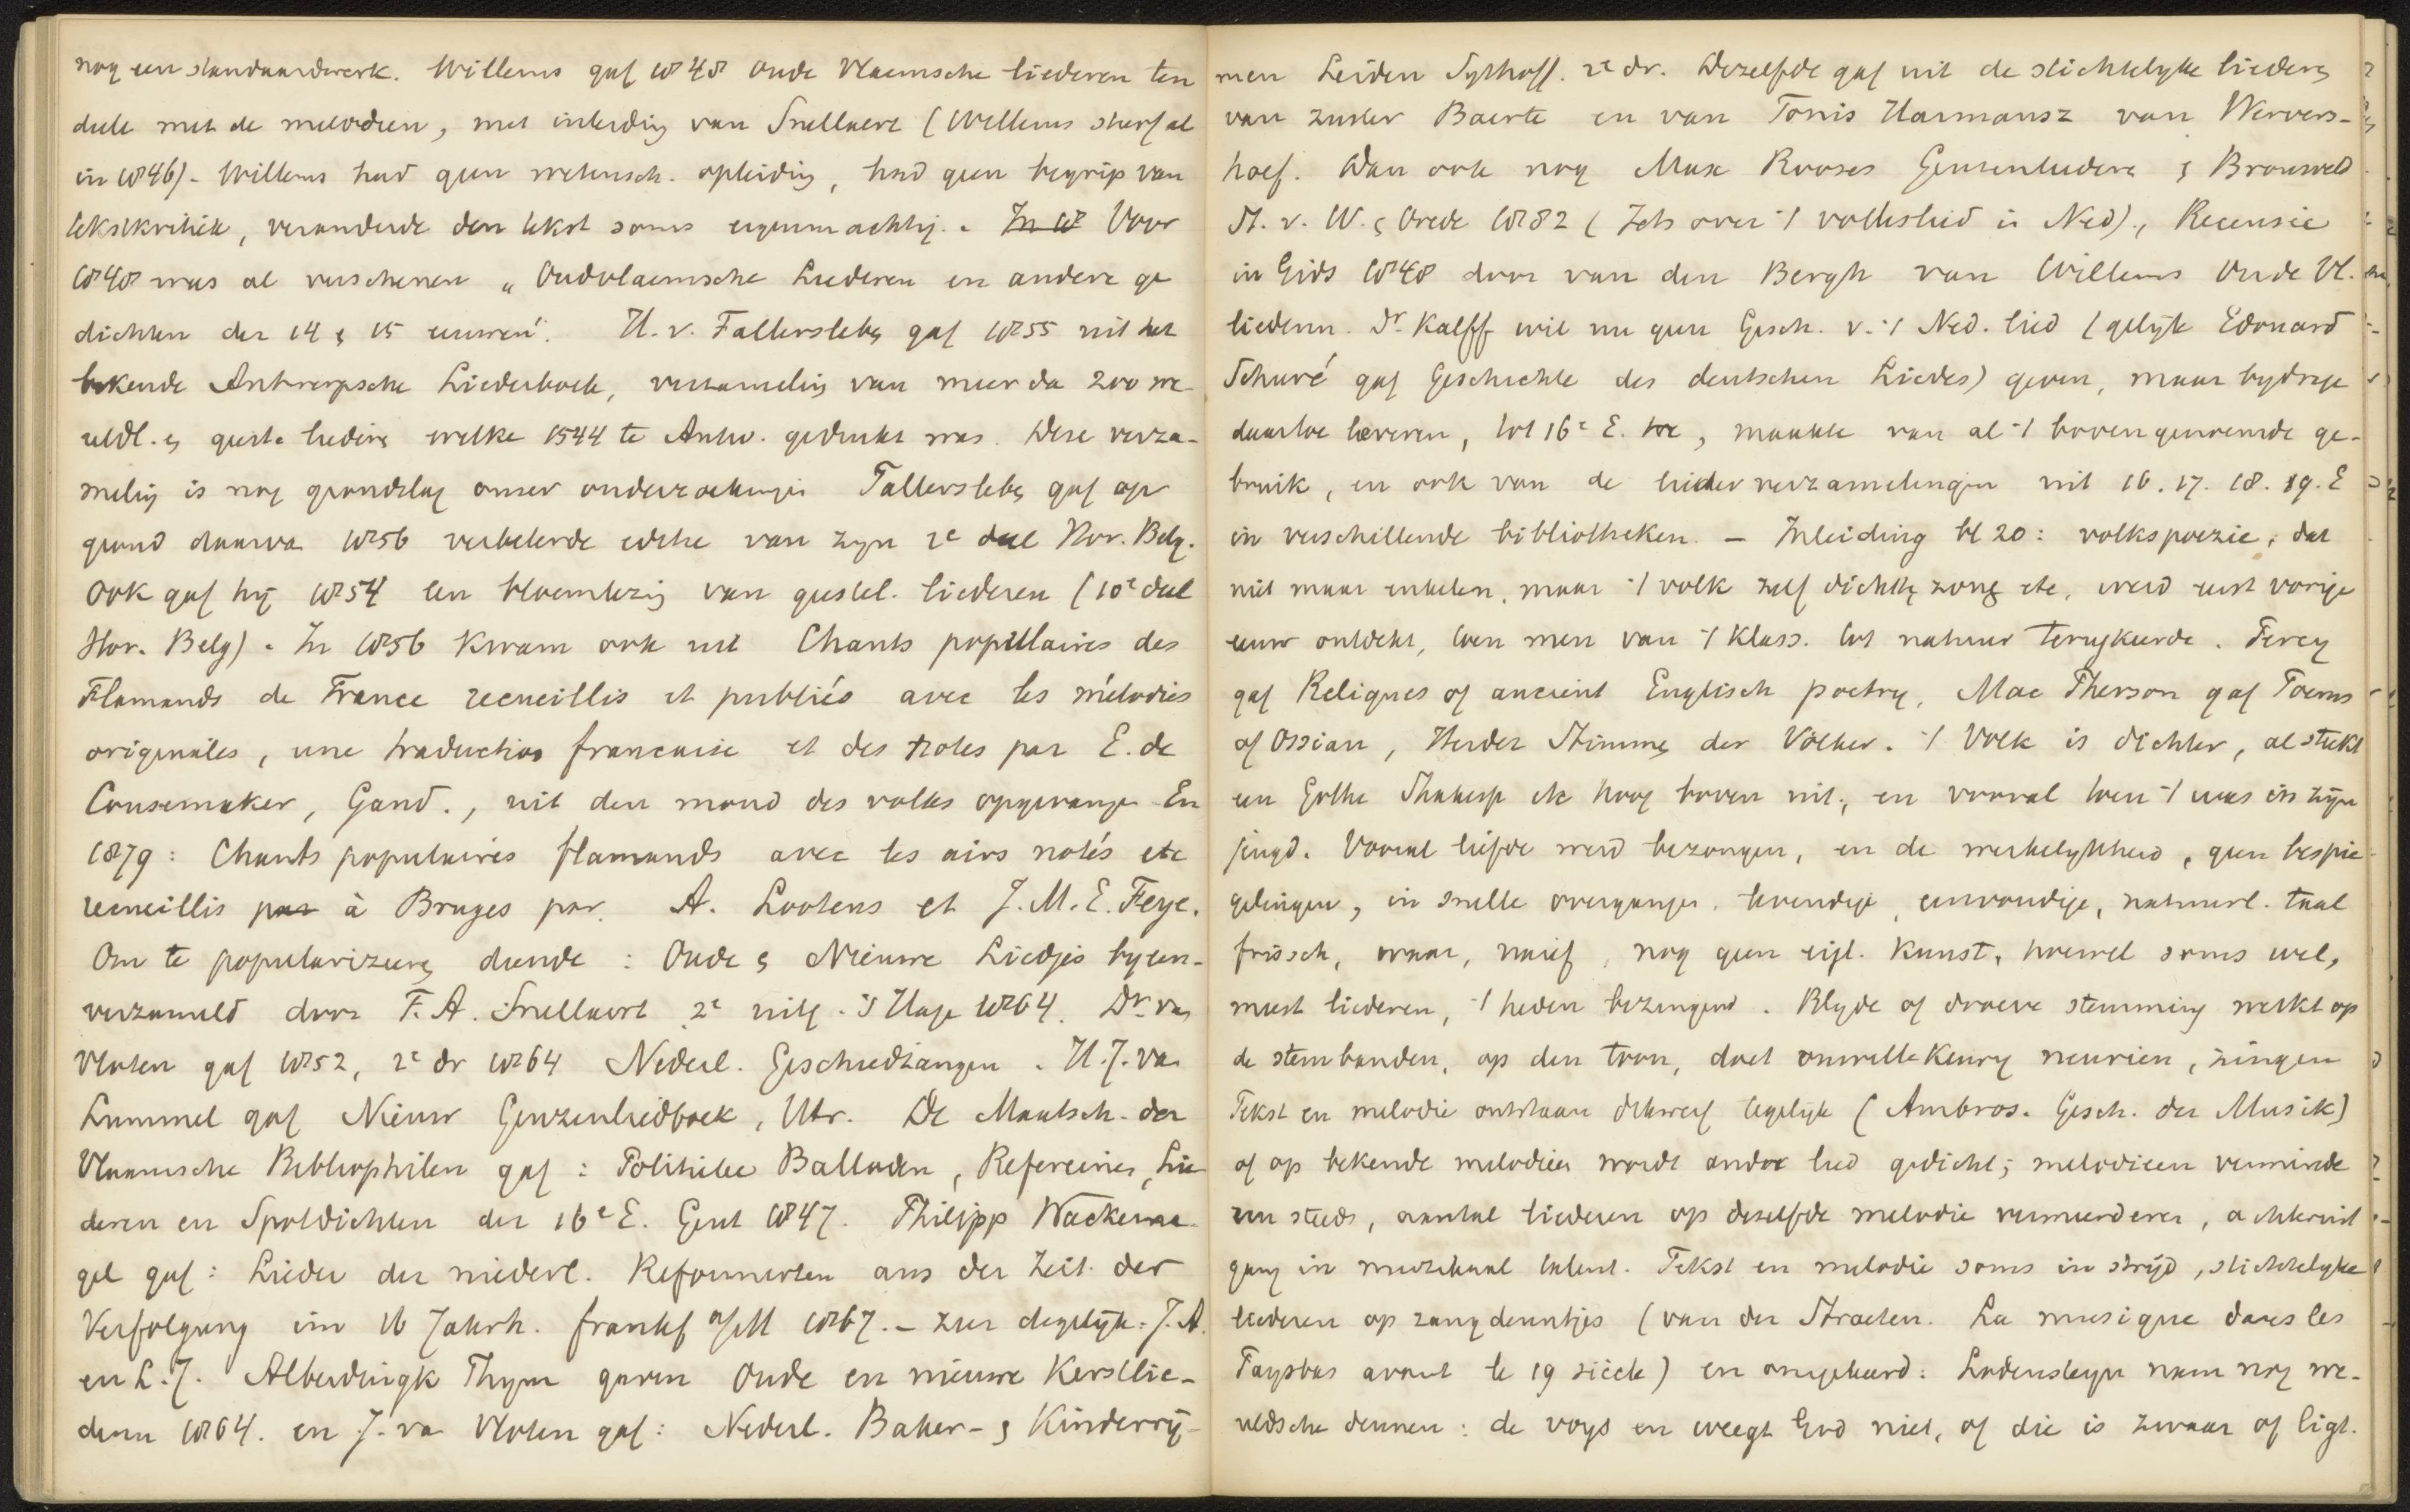 nog een standaardwerk. Willems gaf 1848 Oude Vlaemsche liederen ten
deele met de melodieen, met inleidig van Snellaert (Willems stierf al
in 1846) - Willems had geen wetensch. opleidig, had geen begrip van
tekstkritiek, veranderde den tekst soms eigenmachtig. - In 18 Voor
1848 was al verschenen „Oudvlaemsche Liederen en andere ge
dichten der 14 & 15 eeuwen". H. v. Fallersleb. gaf 1855 uit het
bekende Antwerpsche Liederboek, verzamelig van meer da 200 we
reldl. & geest. liedere welke 1544 te Antw. gedrukt was. Deze verza-
melig is nog grondslag onzer onderzoekingen Fallersleb. gaf op
grond daarva 1856 verbeterde editie van zyn 2e deel Hor. Belg.
Ook gaf hij 1854 een bloemlezig van geestel. liederen (10e deel
Hor. Belg) - In 1856 kwam ook uit Chants populaires des
Flamands de France recueillis et publiés avec les mélodies
originales, une traduction francaise et des notes par E. de
Coussemaker, Gand., uit den mond des volks opgevange. En
1879: Chants populaires flamands avec les airs notés etc
recueillis par à Bruges par. A. Lootens et J. M. E. Feye.
Om te populariseere diende: Oude & Nieuwe Liedjes byeen-
verzameld door F. A. Snellaert 2e uitg. 's Hage 1864. Dr. va
Vloten gaf 1852, 2e dr 1864 Nederl. Geschiedzangen. H. J. va
Lummel gaf Nieuw Geuzenliedboek, Utr. De Maatsch. der
Vlaamsche Bibliophilen gaf: Politieke Balladen, Refereinen, Lie
deren en Spotdichten der 16e E. Gent 1847. Philipp Wackerna-
gel gaf: Lieder der niederl. Reformierten aus der Zeit der
Verfolgung im 16 Jahrh. Frankf a/M 1867. - Zeer degelijk: J. A.
en L. J. Alberdingk Thym gaven Oude en nieuwe Kerstlie-
deren 1864. en J. va Vloten gaf: Nederl. Baker- & Kinderrij-
men Leiden Sythoff. 2e dr. Dezelfde gaf uit de stichtelyke liedere
van zuster Baerte en van Tonis Harmansz van Wervers-
hoef. Dan ook nog Max Rooses Geuzenliedere & Brouwers
St. v. W. & Vrede 1882 (Iets over 't volkslied in Ned)., Recensie
in Gids 1848 door van den Bergh van Willems Oude Vl.
liederen. Dr. Kalff wil nu geen Gesch. v. 't Ned. lied (gelijk Edouard
Schuré gaf Geschichte des deutschen Liedes) geven, maar bydrage
daartoe leveren, tot 16e E. toe, maakte van al 't bovengenoemde ge-
bruik, en ook van de liederverzamelingen uit 16. 17. 18. 19. E
in verschillende bibliotheken. - Inleiding bl 20: volkspoezie, dat
niet maar enkelen, maar 't volk zelf dichtte, zong etc, werd eerst vorige
eeuw ontdekt, toen men van 't klass. tot natuur terugkeerde. Percy
gaf Reliques of ancient Englisch poetry, Mac Pherson gaf Poems
of Ossian, Herder Stimme der Völker. 't Volk is dichter, al steekt
een Gothe Shakesp etc hoog boven uit, en vooral toen 't was in zijn
jeugd. Vooral liefde werd bezongen, en de werkelykheid, geen bespie-
gelingen, in snelle overgangen. levendige, eenvoudige, natuurl. taal
frissch, waar, naief, nog geen eigl. kunst, hoewel soms wel,
meest liederen, 't heden bezingend. Blyde of droeve stemming werkt op
de stembanden, op den toon, doet onwillekeurig neurien, zingen
Tekst en melodie ontstaan dikwerf tegelyk (Ambros. Gesch. der Musik)
of op bekende melodieen wordt ander lied gedicht; melodieen verminde
ren steeds, aantal liederen op dezelfde melodie vermeerderen, achteruit
gang in muzikaal talent. Tekst en melodie soms in strijd, stichtelyke
liederen op zangdeuntjes (van der Straeten. La musique dans les
Paysbas avant le 19 siècle) en omgekeerd: Lodensteyn nam nog we-
reldsche deunen: de voys en weegt God niet, of die is zwaar of ligt.